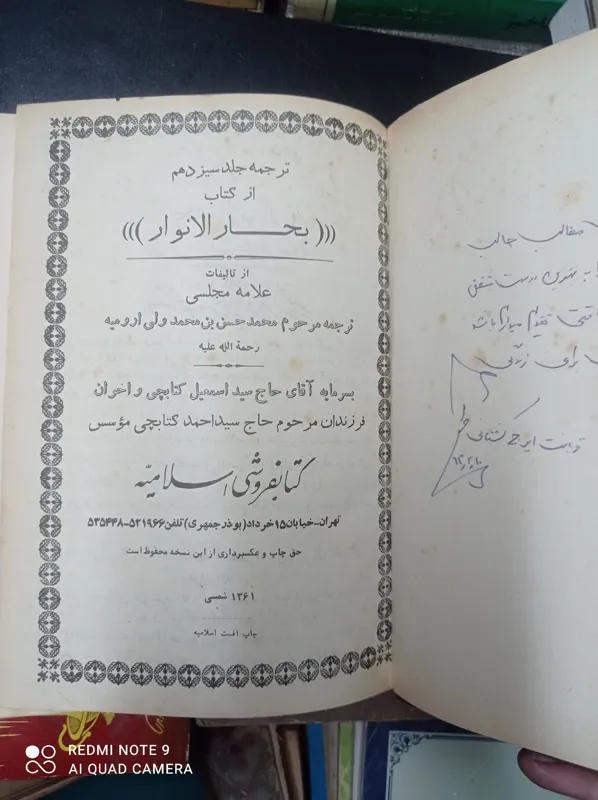 ترجمه جلد سیزدهم
از کتاب
(((بحار الانوار)))
از تالیفات
علامه مجلسی
ترجمه مرحوم محمد حسن بن محمد ولی ارومیه
رحمة الله علیه
بسرمایه آقای حاج سید اسمعیل کتابچی و اخوان
فرزندان مرحوم حاج سید احمد کتابچی مؤسس
کتابفروشی اسلامیه
تهران-خیابان ۱۵ خرداد (بوذرجمهری) تلفن ۵۲۱۹۶۶-۵۳۵۴۴۸
حق چاپ و عکسبرداری از این نسخه محفوظ است
۱۳۶۱ شمسی
چاپ افست اسلامیه
مطالب جالب
دوست شفیق
باشد
برای زندگی
ایرج
REDMI NOTE 9
AI QUAD CAMERA